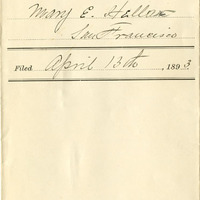 Mary E. Hallax
San Francisco
Filed April 13th, 1893